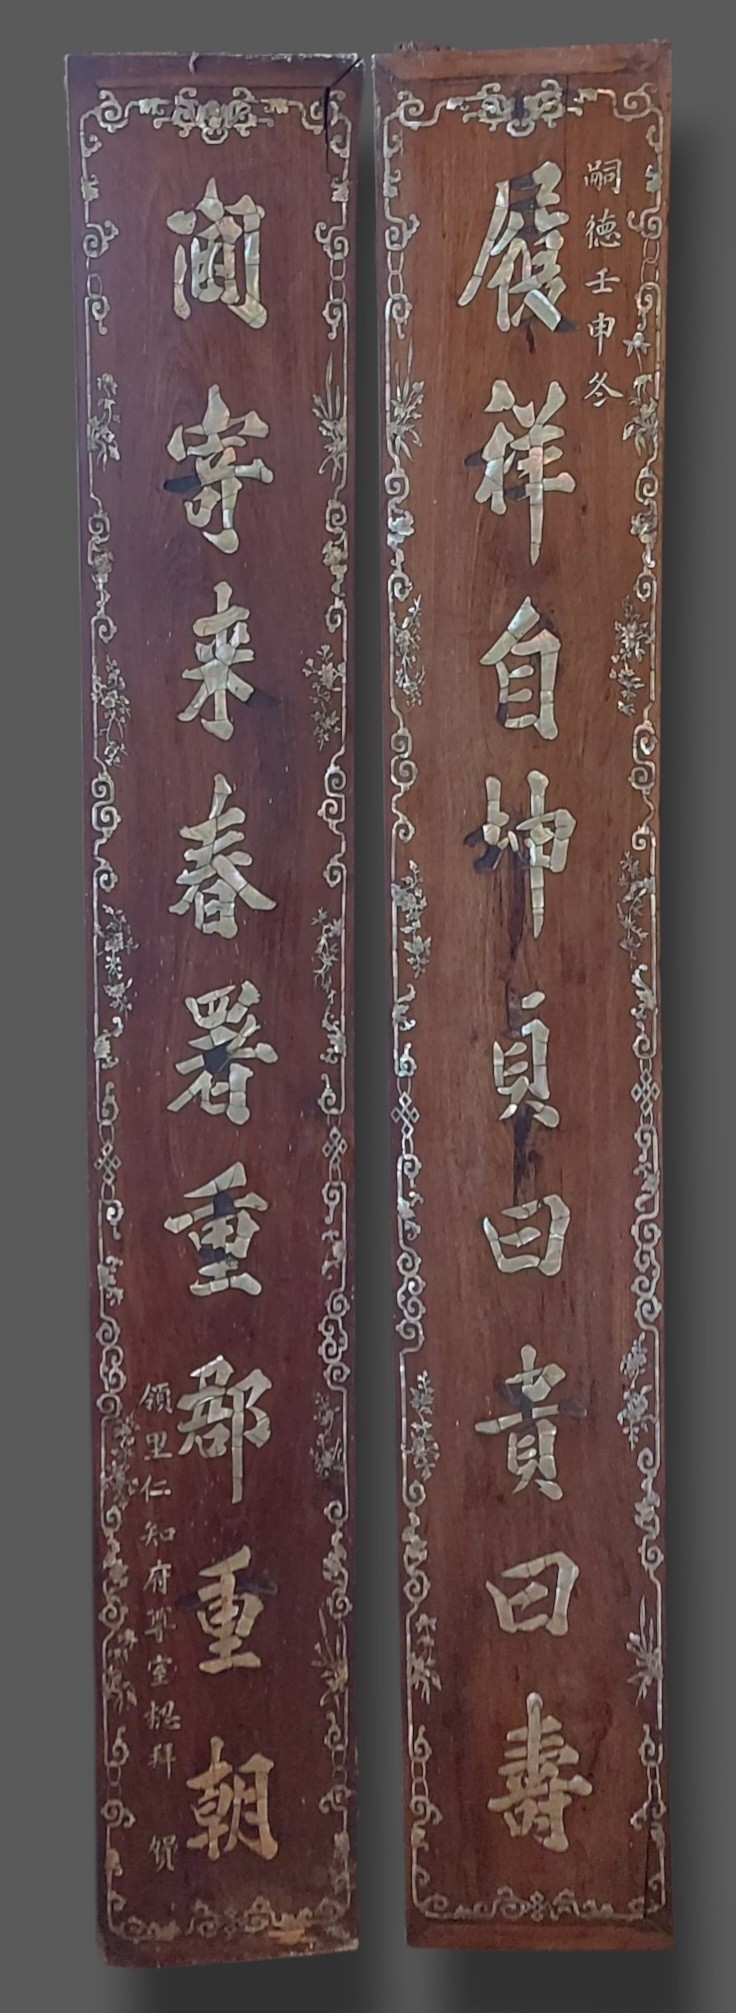 嗣德壬申冬
履祥自坤貞曰貴曰壽
寄来春署重部重朝
領里仁知府尊室拜賀